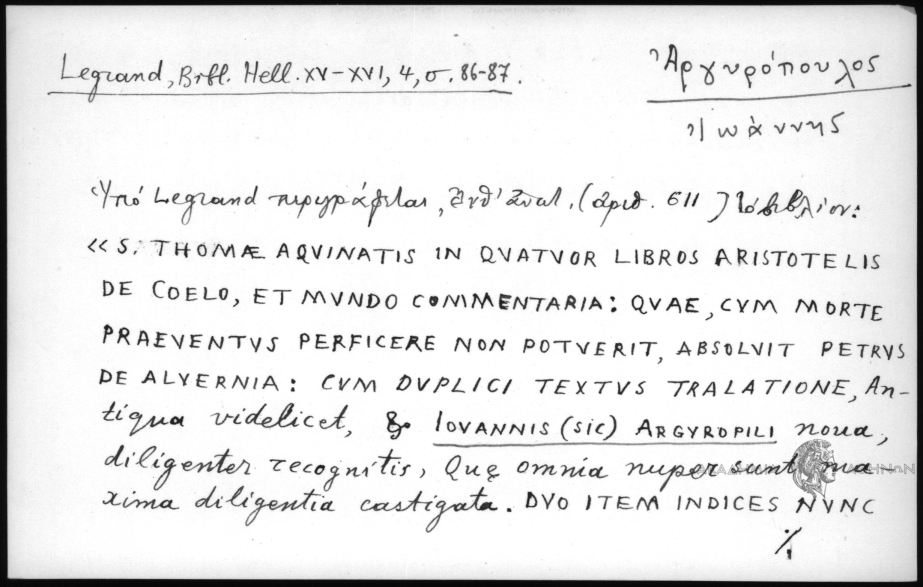 Legrand, Bibl. Hell. XV-XVI, 4, σ. 86-87.
Ἀργυρόπουλος
Ἰωάννης
Ὑπό Legrand περιγράφεται, ἔνθ' ἀνωτ. (ἀριθ. 611) τό βιβλίον:
«S. THOMÆ AQVINATIS IN QVATVOR LIBROS ARISTOTELIS
DE COELO, ET MVNDO COMMENTARIA: QVAE, CVM MORTE
PRAEVENTVS PERFICERE NON POTVERIT, ABSOLVIT PETRVS
DE ALVERNIA: CVM DVPLICI TEXTVS TRALATIONE, An-
tiqua videlicet, & IOVANNIS (sic) ARGYROPILI noua,
diligenter recognitis, Quę omnia nuper sunt ma-
xima diligentia castigata. DVO ITEM INDICES NVNC
./.